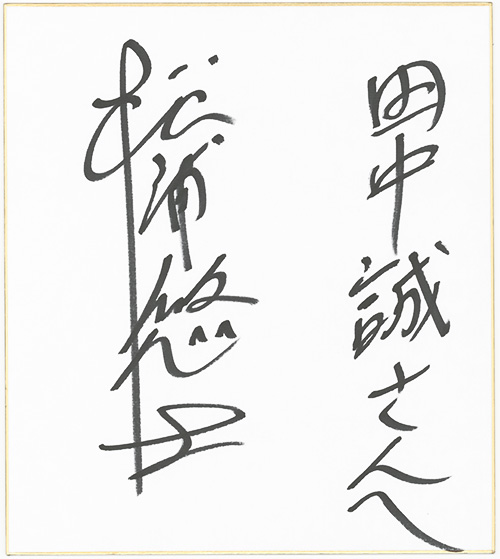 田中誠さんへ
松浦悠士